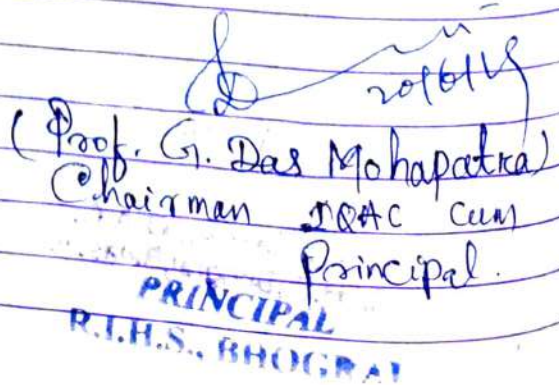 (Prof. G. Das Mohapatra)
Chairman IQAC cum
Principal.
PRINCIPAL
R.I.H.S., BHOGRAI